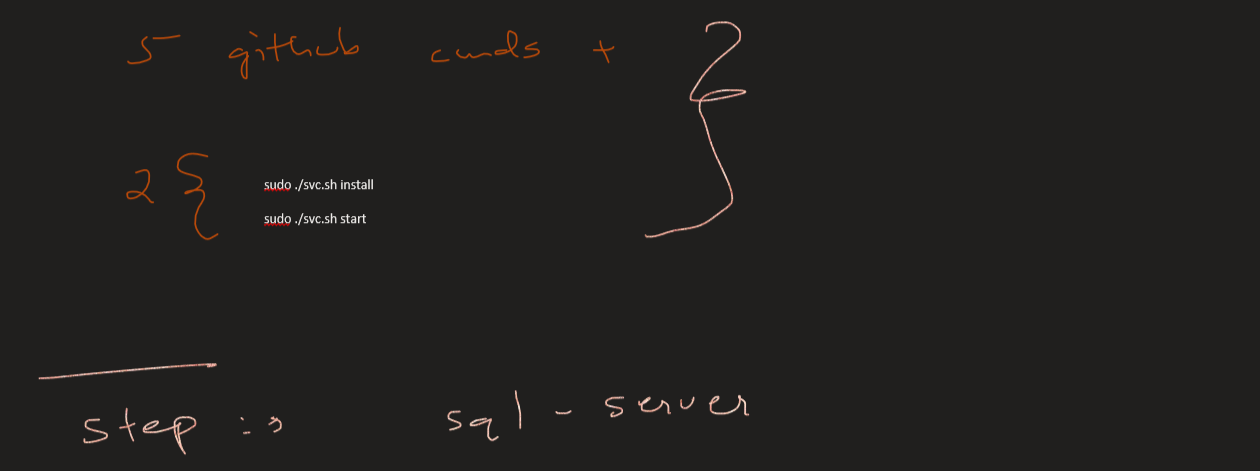 5 github cmds +
2 {
sudo ./svc.sh install
sudo ./svc.sh start
}
step :→ sql - server